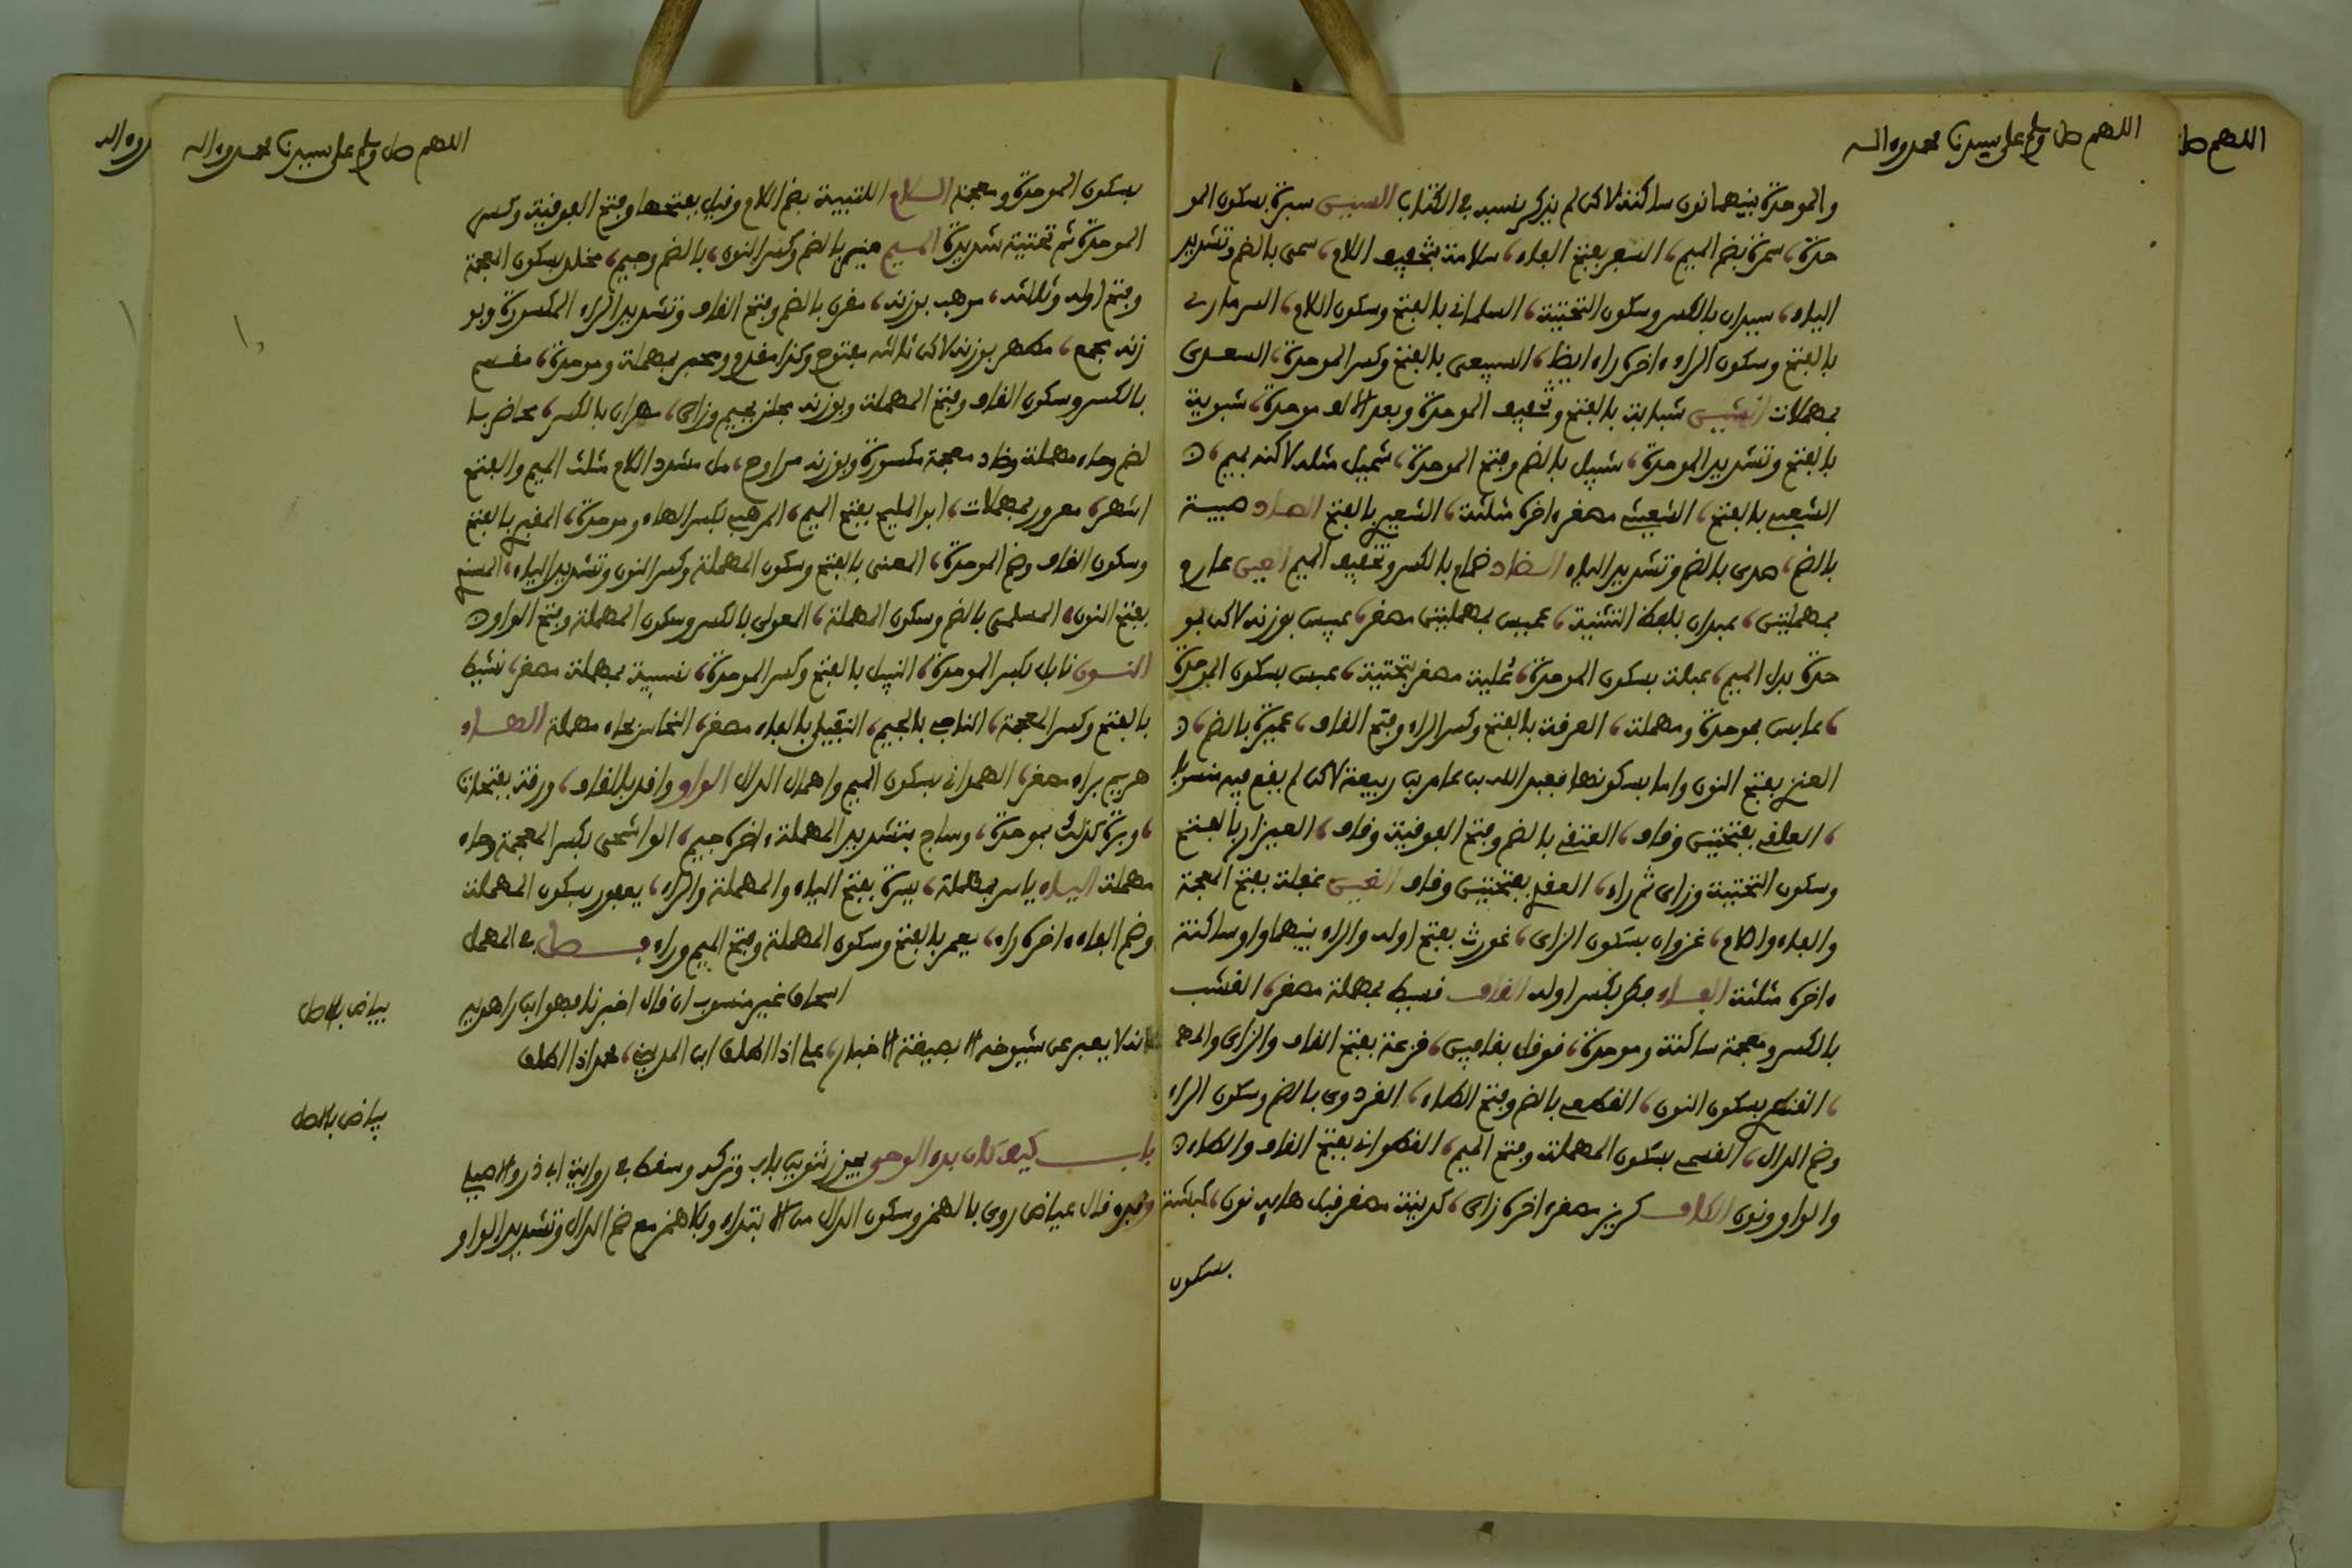 اللهم صل وسلم على سيدنا محمد وءاله
والموحدة بينهما نون ساكنة لاكن لم يذكر نسبه في الكتاب السين سبرة بسكون المو
حدة، سمرة بضم الميم، السفر بفتح الفاء، سلامة بتخفيف اللام، سمى بالضم وتشديد
الياء، سيدان بالكسر وسكون التحتية، السلماني بالفتح وسكون اللام، السرماري
بالفتح وسكون الراء ءاخره راء ايضا، السبيعى بالفتح وكسر الموحدة، السعدى
بمهملات الشين شبابة بالفتح وتخفيف الموحدة وبعد الالف موحدة، شبوية
بالفتح وتشديد الموحدة، شبيل بالضم وفتح الموحدة، شميل مثله لاكنه بميم،
الشعبى بالفتح، الشعيث مصغر ءاخره مثلثة، الشعير بالفتح الصاد صبية
بالضم، صدى بالضم وتشديد الياء الضاد ضمام بالكسر وتخفيف الميم العين عارم
بمهملتين، عبدان بلفظ التثنية، عميس بمهملتين مصغر، عبيس بوزنه لاكن بمو
حدة بدل الميم، عبلة بسكون الموحدة، علية مصغر بتحتية، عبس بسكون الموحدة
، عابس بموحدة ومهملة، العرقة بالفتح وكسر الراء وفتح القاف، عميرة بالضم،
العنزى بفتح النون واما بسكونها فعبد الله بن عامر بن ربيعة لاكن لم يقع فيه منسوبا
، العلقى بفتحتين وقاف، العتقى بالضم وفتح الفوقية وقاف، العيزار بالفتح
وسكون التحتية وزاى ثم راء، العقدى بفتحتين وقاف الغين غفلة بفتح المعجمة
والفاء واللام، غزوان بسكون الزاى، غورث بفتح اوله والراء بينهما واو ساكنة
ءاخره مثلثة الفاء فطر بكسر اوله القاف قسيط بمهملة مصغر، القشب
بالكسر ومعجمة ساكنة وموحدة، قوقل بقافين، قزعة بفتح القاف والزاى والمه
، القنطرى بسكون النون، القطعى بالضم وفتح الطاء، القردوسى بالضم وسكون الراء
وضم الدال، القسملى بسكون المهملة وفتح الميم، القطوانى بفتح القاف والطاء
والواو ونون الكاف كريز مصغر ءاخره زاى، كدينة مصغر قبل هايه نون، كبشة
بسكون
اللهم صل وسلم على سيدنا محمد وءاله
بسكون الموحدة ومعجمة اللام اللتبية بضم اللام وقيل بفتحها وفتح الفوقية وكسر
الموحدة ثم تحتية شديدة الميم منير بالضم وكسر النون، بالضم وجيم، مخلد بسكون المعجمة
وفتح اوله وثالثه، موهب بوزنه، مقرن بالضم وفتح القاف وتشديد الراء المكسورة وبو
زنه مجمع، مطهر بوزنه لاكن ثالثه مفتوح وكذا مقدم ومحبر بمهملة وموحدة، مقسم
بالكسر وسكون القاف وفتح المهملة وبوزنه مجلز بجيم وزاى، مهران بالكسر، محاضر با
لضم وحاء مهملة وضاد معجمة مكسورة وبوزنه مراوح، مل مشدد اللام مثلث الميم والفتح
اشهر، معرور بمهملات، ابو المليح بفتح الميم، المرهبى بكسر الهاء وموحدة، المقبرى بالفتح
وسكون القاف وضم الموحدة، المعنى بالفتح وسكون المهملة وكسر النون وتشديد الياء، المسندى
بفتح النون، المسلمى بالضم وسكون المهملة، المعولى بالكسر وسكون المهملة وفتح الواو
النون نابل بكسر الموحدة، النبيل بالفتح وكسر الموحدة، نسيبة بمهملة مصغر، نشيط
بالفتح وكسر المعجمة، الناجى بالجيم، النفيلى بالفاء مصغر، النحاس بحاء مهملة الهاء
هريم براء مصغر، الهمدانى بسكون الميم واهمال الدال الواو واقد بالقاف، ورقة بفتحات
، وبرة كذلك بموحدة، وساج بتشديد المهملة ءاخره جيم، الواشحى بكسر المعجمة وحاء
مهملة الياء ياسر بمهملة، يسرة بفتح الياء والمهملة والراء، يعفور بسكون المهملة
وضم الفاء ءاخره راء، يعمر بالفتح وسكون المهملة وفتح الميم وراء فصل في المهمل
اسحاق غير منسوب ان قال اخبرنا فهو ابن راهويه
لانه لا يعبر عن شيوخه الا بصيغة الاخبار، على اذا اطلق ابن المدينى، محمد اذا اطلق
باب كيف كان بدء الوحى يجوز تنوين باب وتركه وسقط في رواية ابى ذر والاصيلى
وغيره قال عياض روى بالهمز وسكون الدال من الابتداء وبلا همز مع ضم الدال وتشديد الواو
بياض بالاصل
بياض بالاصل